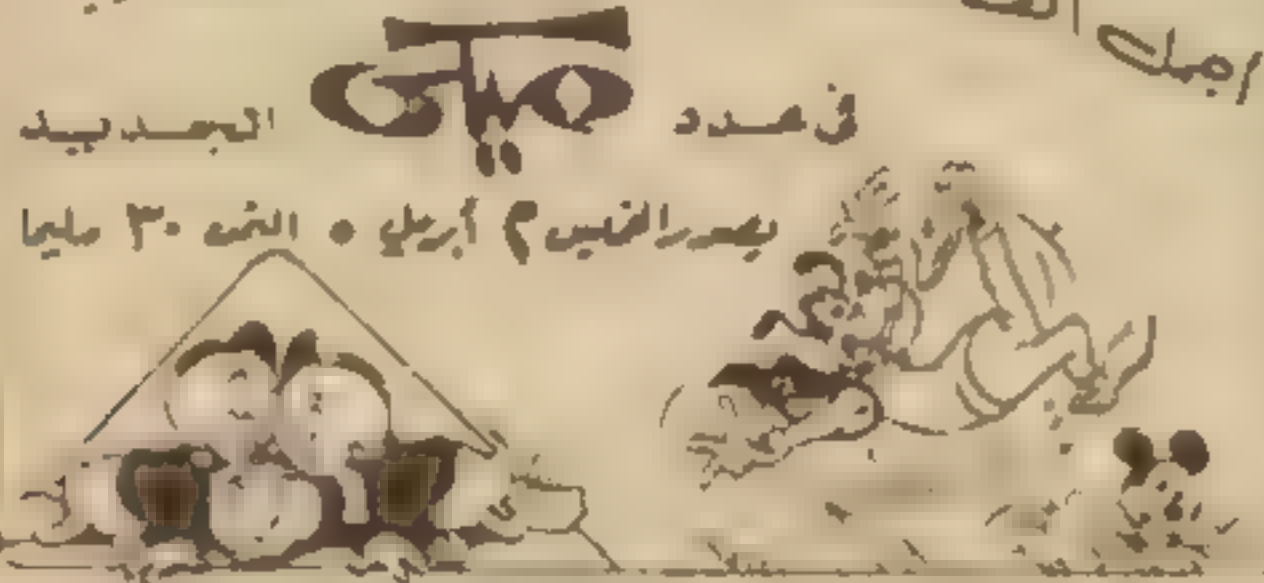 اجمل
فى عدد ميكى الجديد
يصدر الخميس ٢ أبريل • الثمن ٣٠ مليما